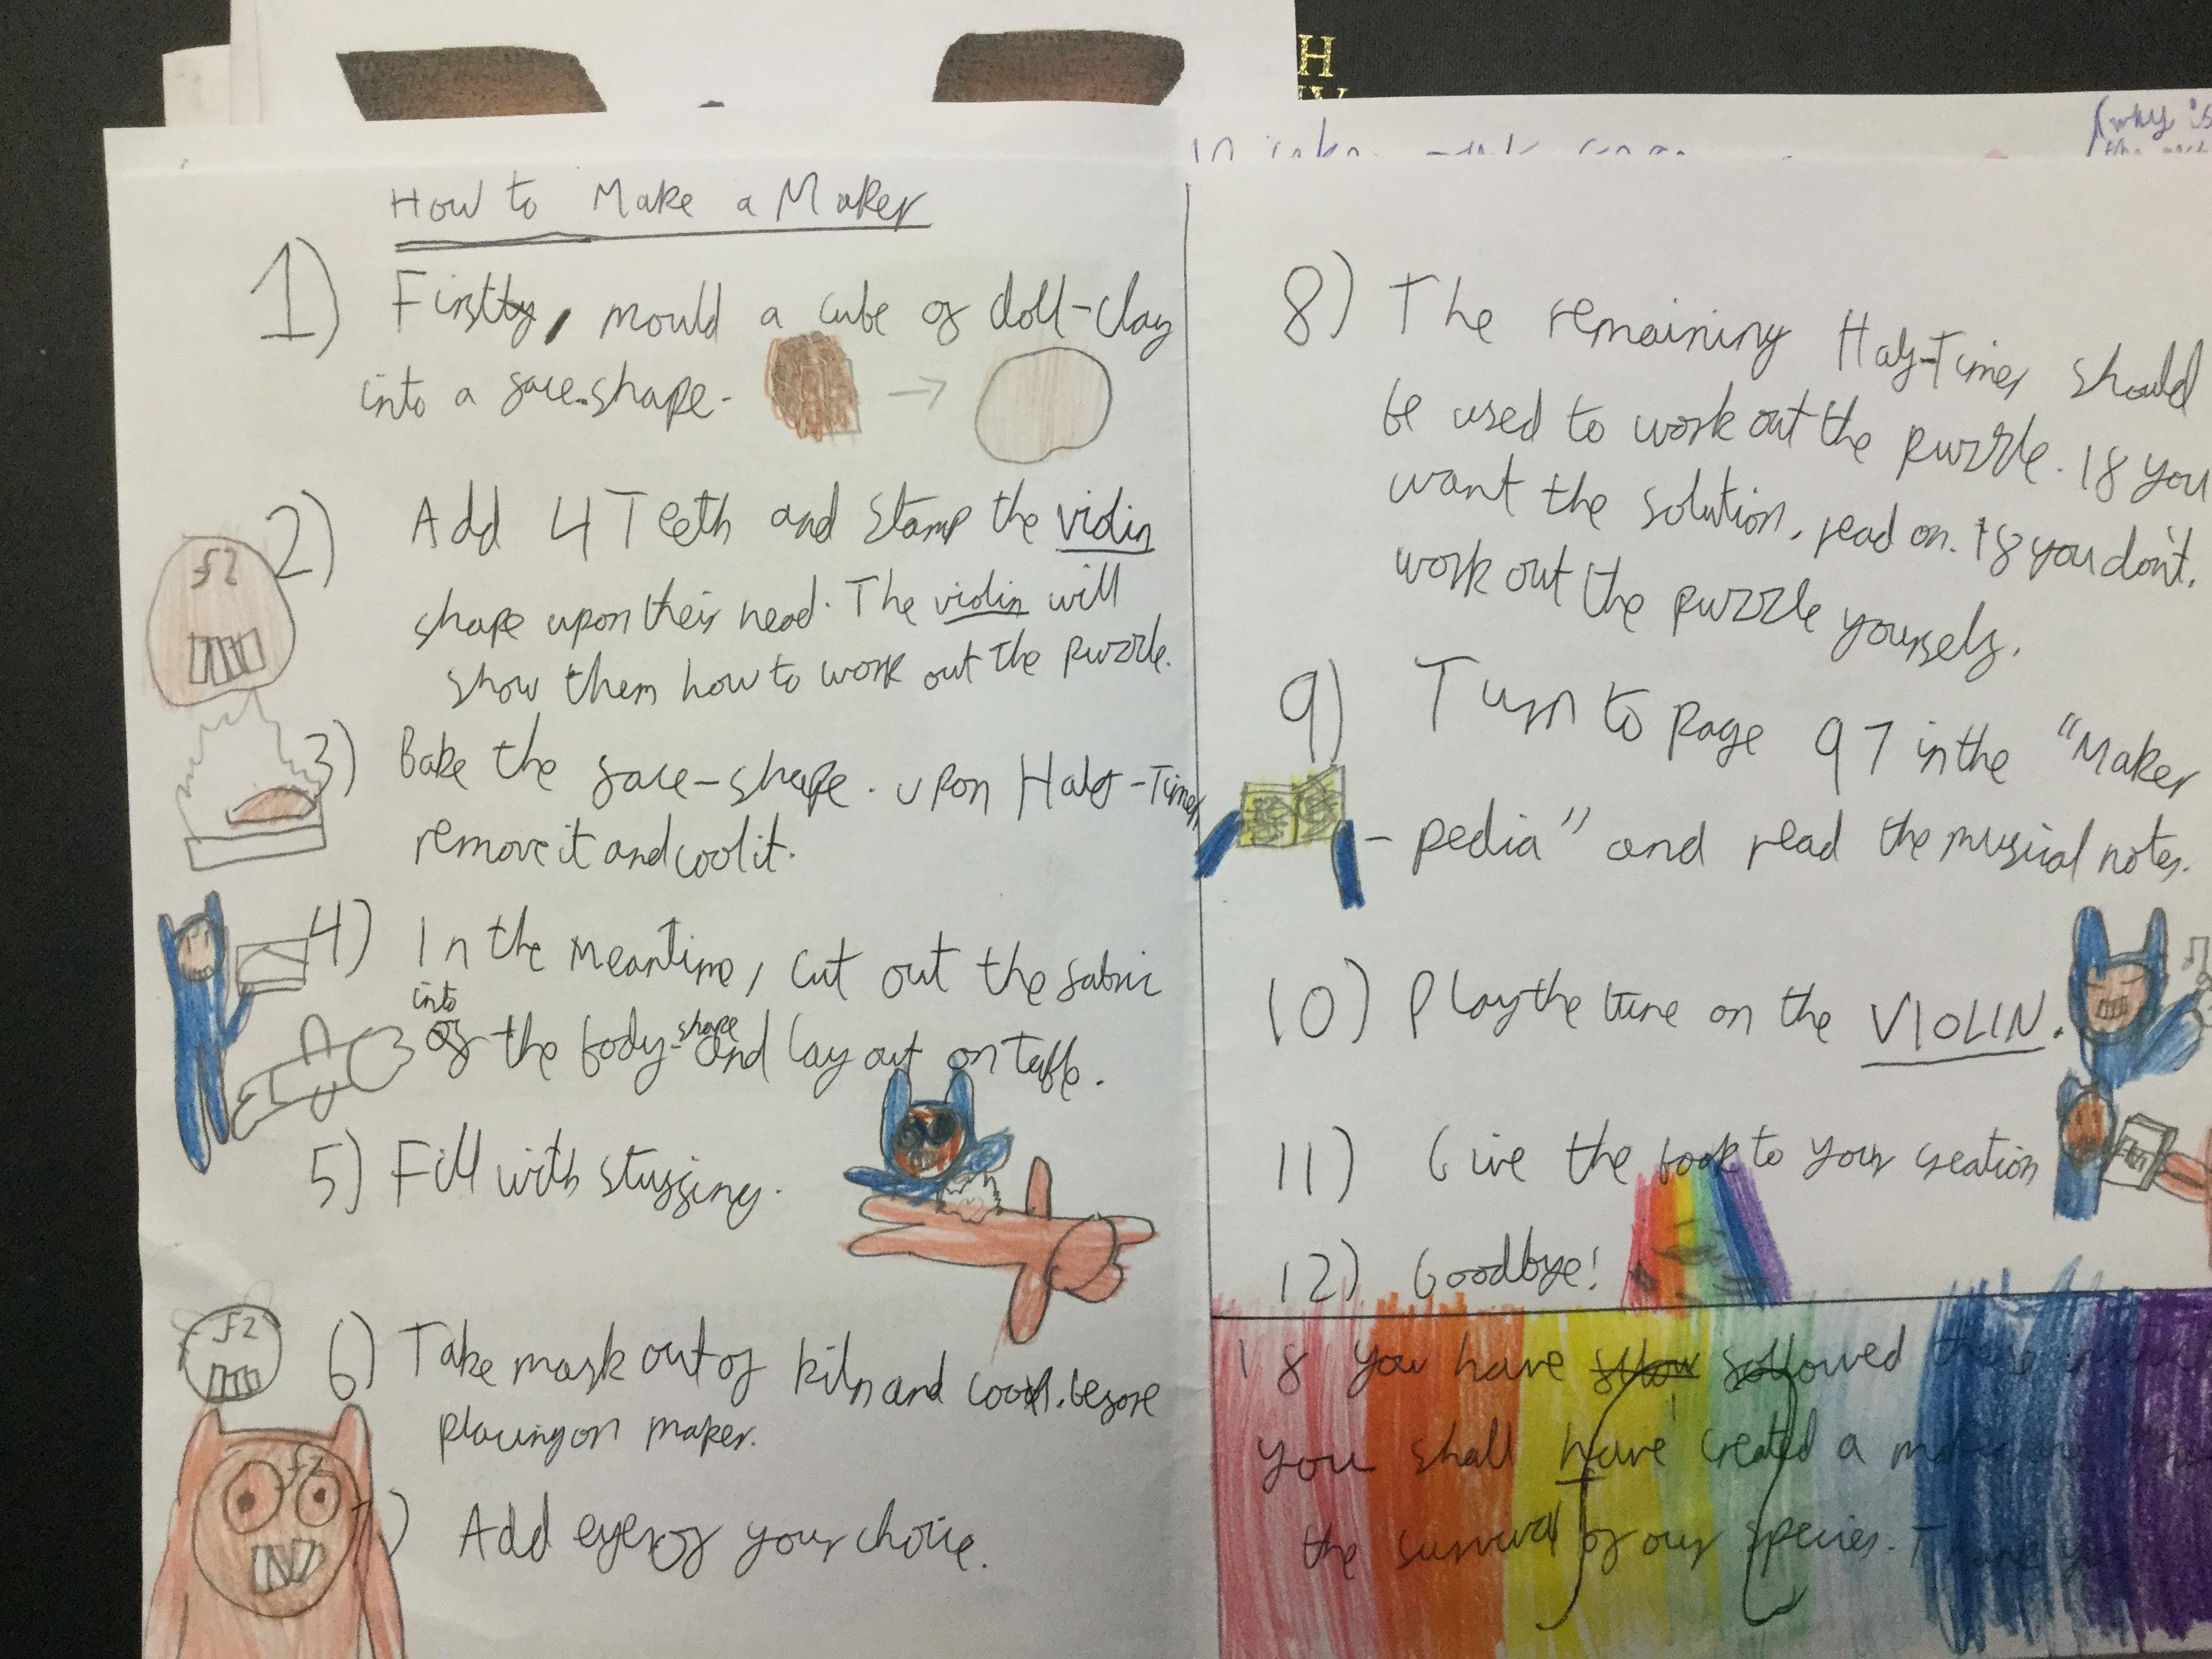 H
(why is
How to Make a Maker
1) First, mould a cube of doll-clay
into a face-shape.
2) Add 4 Teeth and stamp the violin
shape upon their head. The violin will
show them how to work out the puzzle.
3) Bake the face-shape. Upon Half-Time,
remove it and cool it.
4) In the meantime, cut out the fabric
into
of the body-shape and lay out on table.
5) Fill with stuffing.
6) Take mask out of kiln and cool, before
placing on maker.
7) Add eyes of your choice.
8) The remaining Half-Time, should
be used to work out the puzzle. If you
want the solution, read on. If you don't,
work out the puzzle yourself.
9) Turn to page 97 in the "Maker
-pedia" and read the musical notes.
10) Play the tune on the VIOLIN.
11) Give the book to your creation
12) Goodbye!
If you have followed these
you shall have created a
the survival of our species. Thank